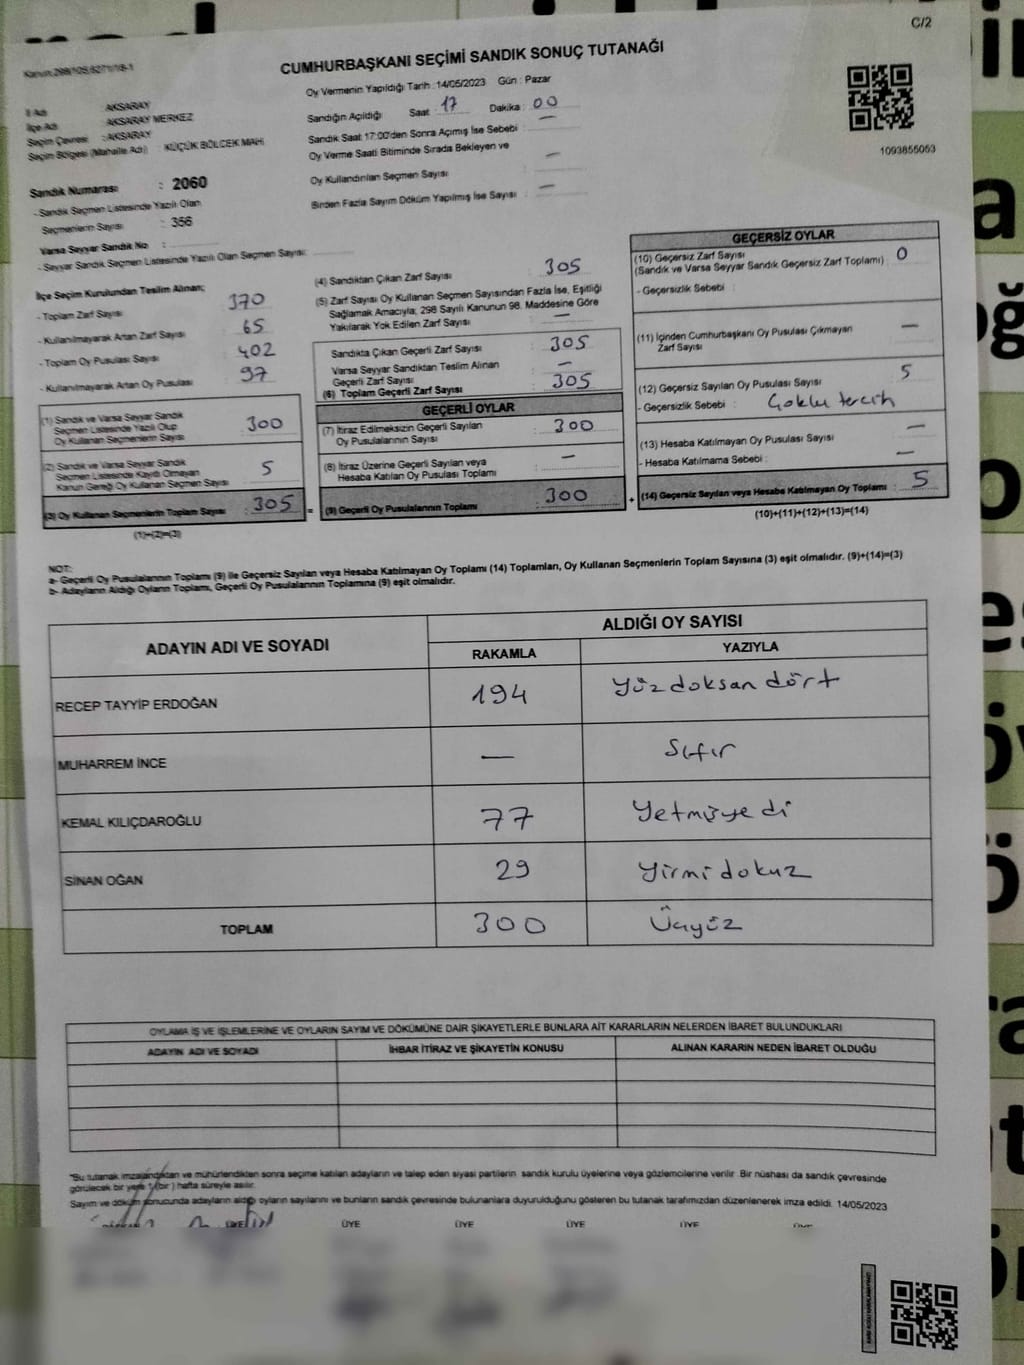 C/2
Kanun:298/105,6271/18-1
CUMHURBAŞKANI SEÇİMİ SANDIK SONUÇ TUTANAĞI
Oy Vermenin Yapıldığı Tarih :14/05/2023 Gün : Pazar
İl Adı AKSARAY
İlçe Adı AKSARAY MERKEZ
Seçim Çevresi : AKSARAY
Seçim Bölgesi (Mahalle Adı) : KÜÇÜK BÖLCEK MAH.
Sandığın Açıldığı Saat : 17 Dakika : 00
Sandık Saat 17:00'den Sonra Açımış İse Sebebi : —
Oy Verme Saati Bitiminde Sırada Bekleyen ve
Oy Kullandırılan Seçmen Sayısı : —
Birden Fazla Sayım Döküm Yapılmış İse Sayısı : —
1093855053
Sandık Numarası : 2060
- Sandık Seçmen Listesinde Yazılı Olan
Seçmenlerin Sayısı : 356
Varsa Seyyar Sandık No :
- Seyyar Sandık Seçmen Listesinde Yazılı Olan Seçmen Sayısı:
İlçe Seçim Kurulundan Teslim Alınan;
- Toplam Zarf Sayısı : 370
- Kullanılmayarak Artan Zarf Sayısı : 65
- Toplam Oy Pusulası Sayısı : 402
- Kullanılmayarak Artan Oy Pusulası : 97
(1) Sandık ve Varsa Seyyar Sandık
Seçmen Listesinde Yazılı Olup
Oy Kullanan Seçmenlerin Sayısı : 300
(2) Sandık ve Varsa Seyyar Sandık
Seçmen Listesinde Kayıtlı Olmayan
Kanun Gereği Oy Kullanan Seçmen Sayısı : 5
(3) Oy Kullanan Seçmenlerin Toplam Sayısı : 305 =
(1)+(2)=(3)
(4) Sandıktan Çıkan Zarf Sayısı : 305
(5) Zarf Sayısı Oy Kullanan Seçmen Sayısından Fazla İse, Eşitliği
Sağlamak Amacıyla; 298 Sayılı Kanunun 98. Maddesine Göre
Yakılarak Yok Edilen Zarf Sayısı : —
Sandıkta Çıkan Geçerli Zarf Sayısı : 305
Varsa Seyyar Sandıktan Teslim Alınan
Geçerli Zarf Sayısı : —
(6) Toplam Geçerli Zarf Sayısı : 305
GEÇERLİ OYLAR
(7) İtiraz Edilmeksizin Geçerli Sayılan
Oy Pusulalarının Sayısı : 300
(8) İtiraz Üzerine Geçerli Sayılan veya
Hesaba Katılan Oy Pusulası Toplamı : —
(9) Geçerli Oy Pusulalarının Toplamı : 300 +
GEÇERSİZ OYLAR
(10) Geçersiz Zarf Sayısı
(Sandık ve Varsa Seyyar Sandık Geçersiz Zarf Toplamı) : 0
- Geçersizlik Sebebi :
(11) İçinden Cumhurbaşkanı Oy Pusulası Çıkmayan
Zarf Sayısı : —
(12) Geçersiz Sayılan Oy Pusulası Sayısı : 5
- Geçersizlik Sebebi : Çoklu tercih
(13) Hesaba Katılmayan Oy Pusulası Sayısı : —
- Hesaba Katılmama Sebebi : —
(14) Geçersiz Sayılan veya Hesaba Katılmayan Oy Toplamı : 5
(10)+(11)+(12)+(13)=(14)
NOT:
a- Geçerli Oy Pusulalarının Toplamı (9) ile Geçersiz Sayılan veya Hesaba Katılmayan Oy Toplamı (14) Toplamları, Oy Kullanan Seçmenlerin Toplam Sayısına (3) eşit olmalıdır. (9)+(14)=(3)
b- Adayların Aldığı Oyların Toplamı, Geçerli Oy Pusulalarının Toplamına (9) eşit olmalıdır.
ADAYIN ADI VE SOYADI
ALDIĞI OY SAYISI
RAKAMLA YAZIYLA
RECEP TAYYİP ERDOĞAN 194 Yüz doksan dört
MUHARREM İNCE — Sıfır
KEMAL KILIÇDAROĞLU 77 Yetmişyedi
SİNAN OĞAN 29 Yirmi dokuz
TOPLAM 300 Üçyüz
OYLAMA İŞ VE İŞLEMLERİNE VE OYLARIN SAYIM VE DÖKÜMÜNE DAİR ŞİKAYETLERLE BUNLARA AİT KARARLARIN NELERDEN İBARET BULUNDUKLARI
ADAYIN ADI VE SOYADI İHBAR İTİRAZ VE ŞİKAYETİN KONUSU ALINAN KARARIN NEDEN İBARET OLDUĞU
*Bu tutanak imzalandıktan ve mühürlendikten sonra seçime katılan adayların ve talep eden siyasi partilerin sandık kurulu üyelerine veya gözlemcilerine verilir. Bir nüshası da sandık çevresinde
görülecek bir yere 1 (bir ) hafta süreyle asılır.
Sayım ve döküm sonucunda adayların aldığı oyların sayılarını ve bunların sandık çevresinde bulunanlara duyurulduğunu gösteren bu tutanak tarafımızdan düzenlenerek imza edildi. 14/05/2023
ÜYE ÜYE ÜYE ÜYE ÜYE